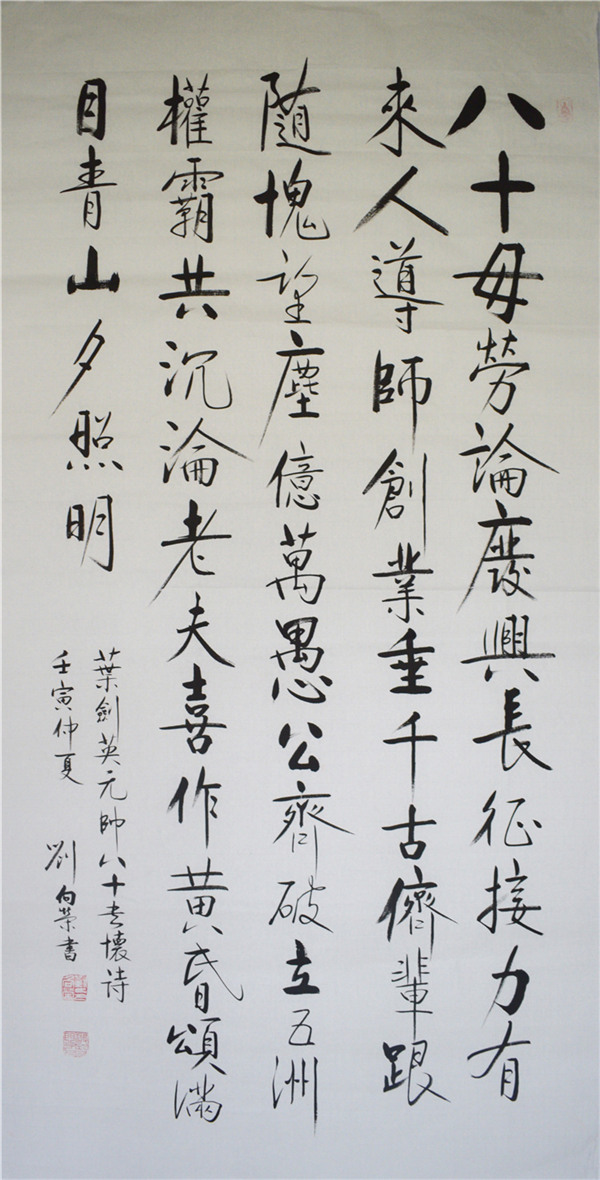 八十毋勞論廢興長征接力有
來人導師創業垂千古儕輩跟
随愧望塵億萬愚公齊破立五洲
權霸共沉淪老夫喜作黄昏頌滿
目青山夕照明
葉劍英元帥八十書懷詩
壬寅仲夏 劉向榮書